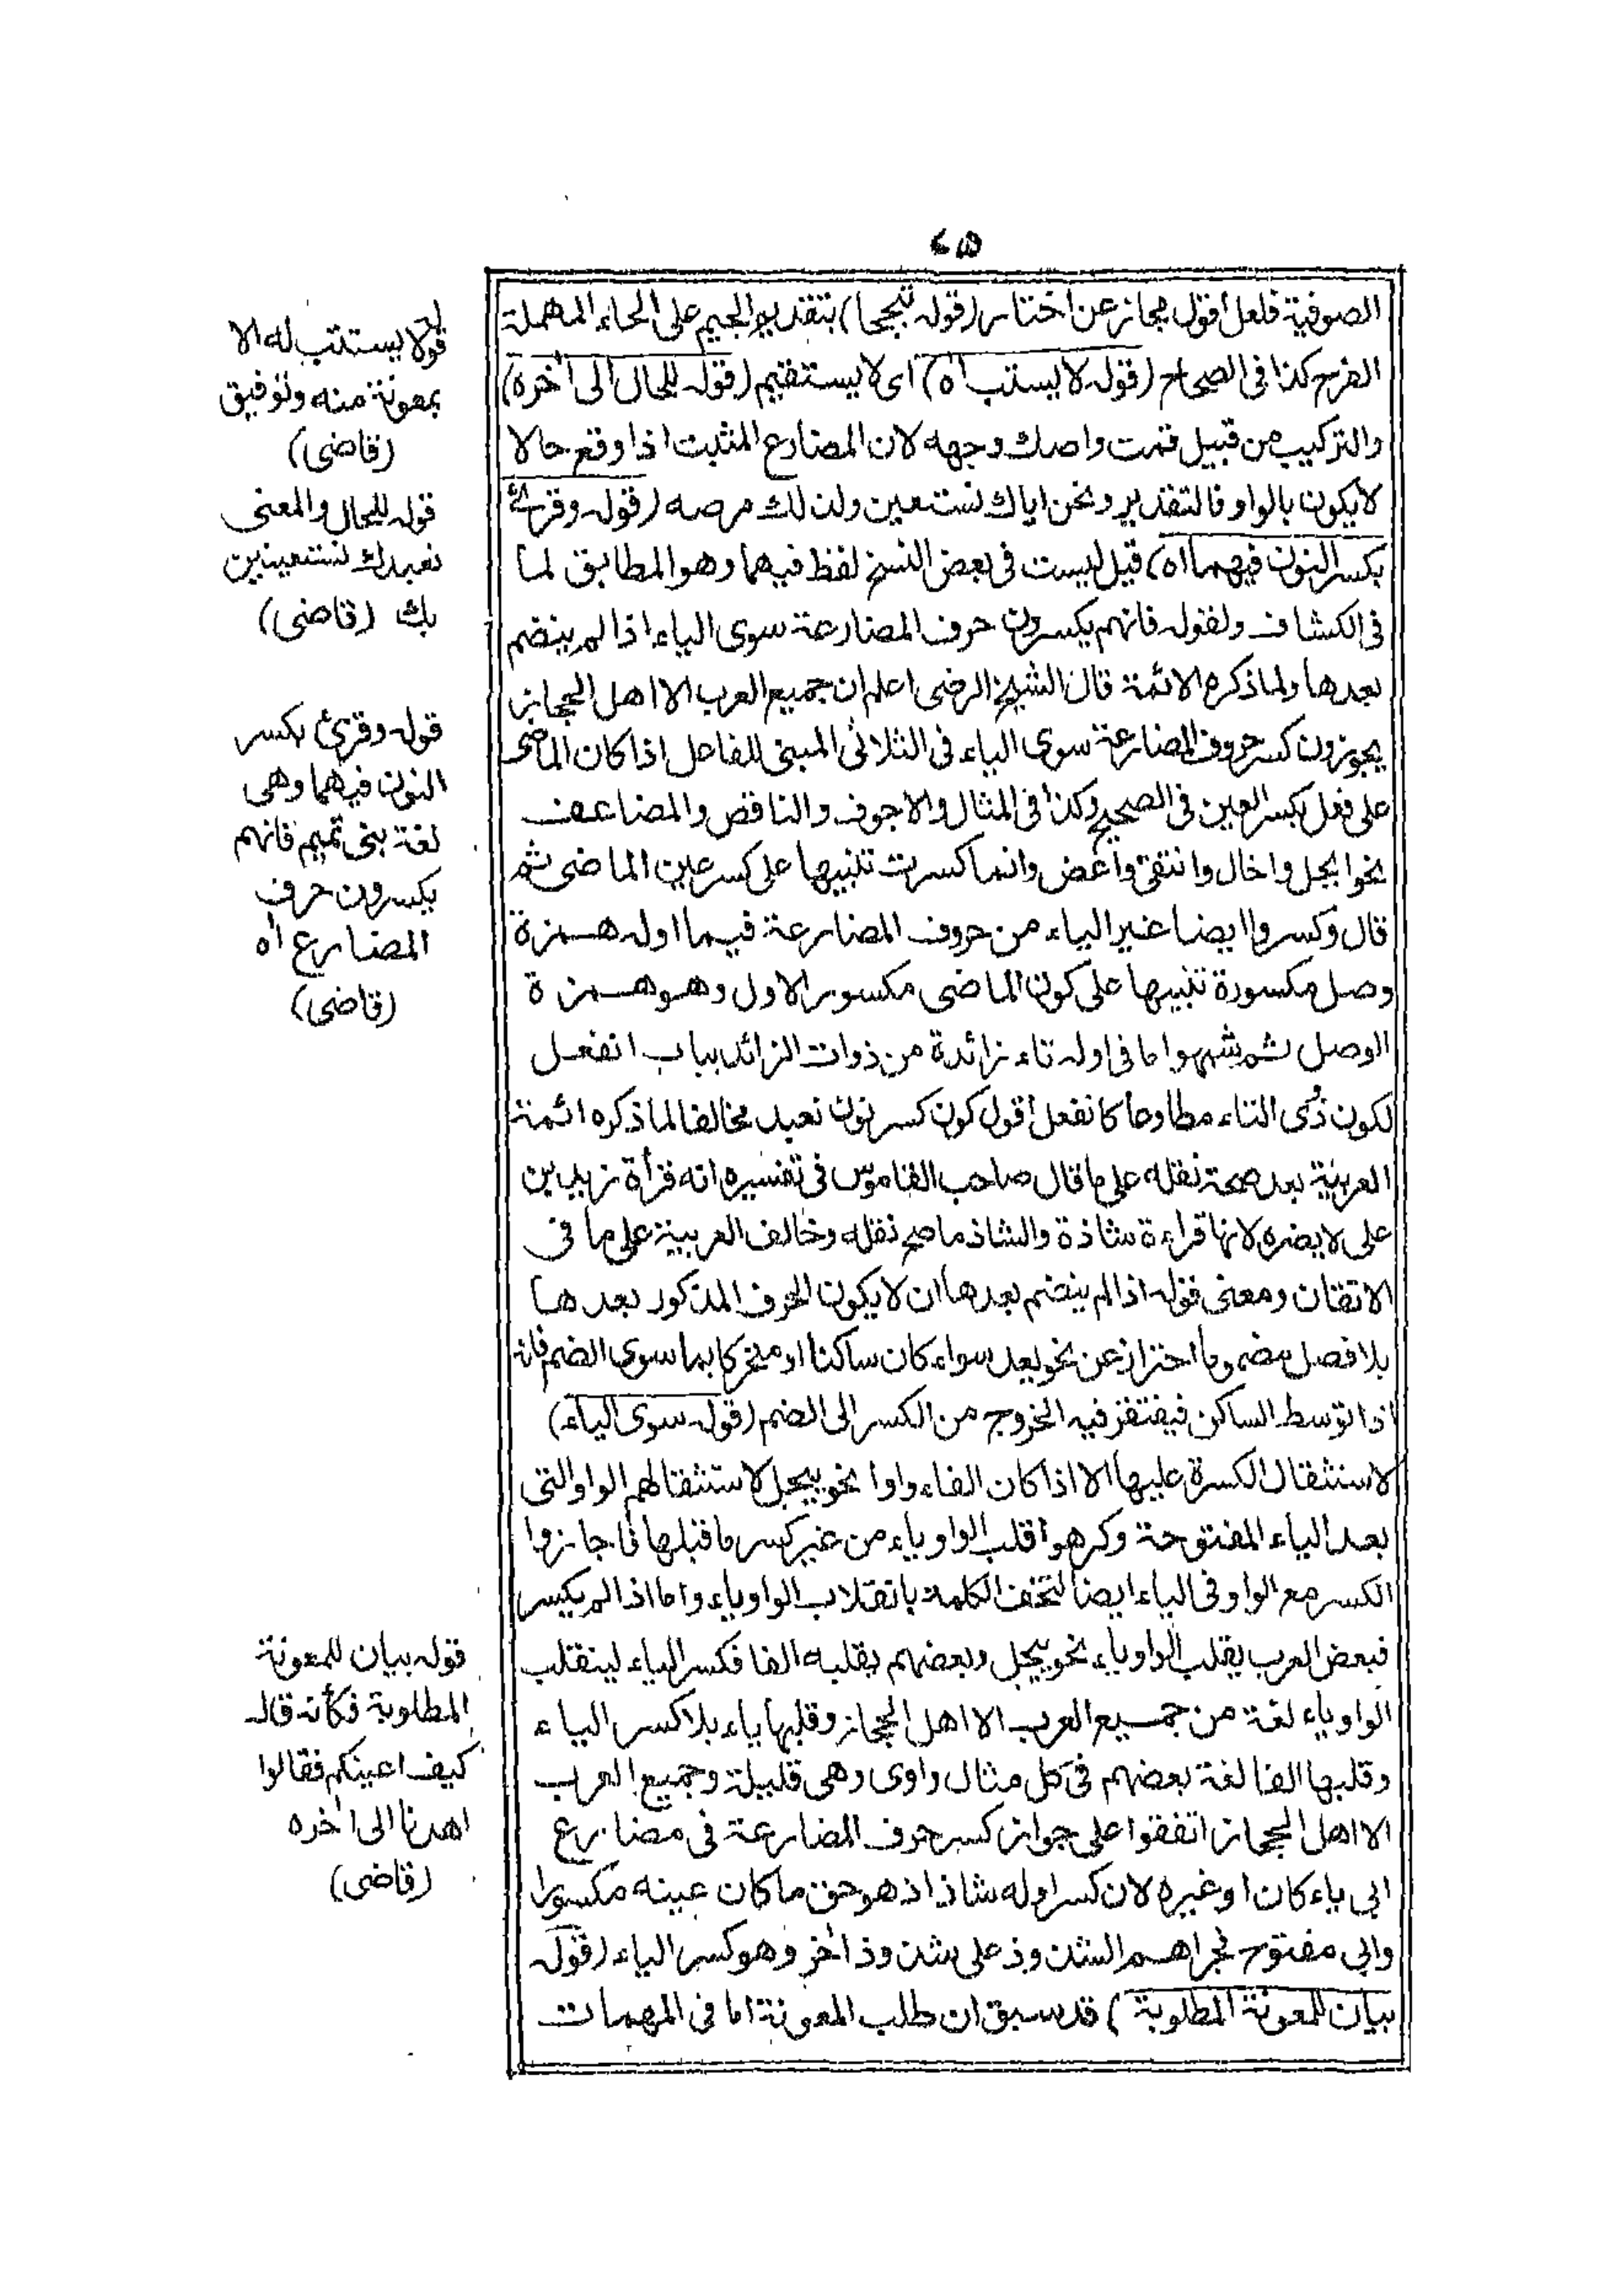 ٤٥
الصوفية فلعل اقول مجاز عن اختار (قوله تبجحا) بتقديم الجيم على الحاء المهملة
الفرح كذا فى الصحاح (قوله لا يستتب اه) اى لا يستقيم (قوله للحال الى اخره)
والتركيب من قبيل قمت واصك وجهه لان المضارع المثبت اذا وقع حالا
لا يكون بالواو فالتقدير ونحن اياك نستعين ولذلك مرضه (قوله وقرئ
بكسر النون فيهما اه) قيل ليست فى بعض النسخ لفظ فيهما وهو المطابق لما
فى الكشاف ولقوله فانهم يكسرون حرف المضارعة سوى الياء اذا لم ينضم
بعدها ولما ذكره الائمة قال الشيخ الرضى اعلم ان جميع العرب الا اهل الحجاز
يجوزون كسر حروف المضارعة سوى الياء فى الثلاثى المبنى للفاعل اذا كان الماضى
على فعل بكسر العين فى الصحيح وكذا فى المثال والاجوف والناقص والمضاعف
نحو ايجل واخال وانتقى واعض وانما كسرت تنبيها على كسر عين الماضى ثم
قال وكسروا ايضا غير الياء من حروف المضارعة فيما اوله همزة
وصل مكسورة تنبيها على كون الماضى مكسور الاول وهو همزة
الوصل ثم شبهوا ما فى اوله تاء زائدة من ذوات الزائد بباب انفعل
لكون ذى التاء مطاوعا كانفعل اقول كون كسر نون نعبد مخالفا لما ذكره ائمة
العربية بعد صحة نقله على ما قال صاحب القاموس فى تفسيره انه قرأة زيد بن
على لا يضره لانها قراءة شاذة والشاذ ما صح نقله وخالف العربية على ما فى
الاتقان ومعنى قوله اذا لم ينضم بعدها ان لا يكون الحرف المذكور بعدها
بلا فصل مضموما احتراز عن نحو يعد سواء كان ساكنا او متحركا بما سوى الضم فانه
اذا توسط الساكن فيفتقر فيه الخروج من الكسر الى الضم (قوله سوى الياء)
لاستثقال الكسرة عليها الا اذا كان الفاء واوا نحو ييجل لاستثقالهم الواو التى
بعد الياء المفتوحة وكرهوا قلب الواو ياء من غير كسر ما قبلها فاجازوا
الكسر مع الواو فى الياء ايضا لتخف الكلمة بانقلاب الواو ياء واما اذا لم يكسر
فبعض العرب يقلب الواو ياء نحو ييجل وبعضهم يقلبه الفا فكسر الياء لينقلب
الواو ياء لغة من جميع العرب الا اهل الحجاز وقلبها ياء بلا كسر الياء
وقلبها الفا لغة بعضهم فى كل مثال واوى وهى قليلة وجميع العرب
الا اهل الحجاز اتفقوا على جواز كسر حرف المضارعة فى مضارع
ابى ياء كان او غيره لان كسر اوله شاذ اذ هو حق ما كان عينه مكسورا
وابى مفتوح فجراهم الشذوذ على شذوذ اخر وهو كسر الياء (قوله
بيان للمعونة المطلوبة) قد سبق ان طلب المعونة اما فى المهمات
قوله لا يستتب له الا
بمعونة منه وتوفيق
(قاضى)
قوله للحال والمعنى
نعبدك نستعينين
بك (قاضى)
قوله وقرئ بكسر
النون فيهما وهى
لغة بنى تميم فانهم
يكسرون حرف
المضارع اه
(قاضى)
قوله بيان للمعونة
المطلوبة فكأنه قال
كيف اعينكم فقالوا
اهدنا الى اخره
(قاضى)